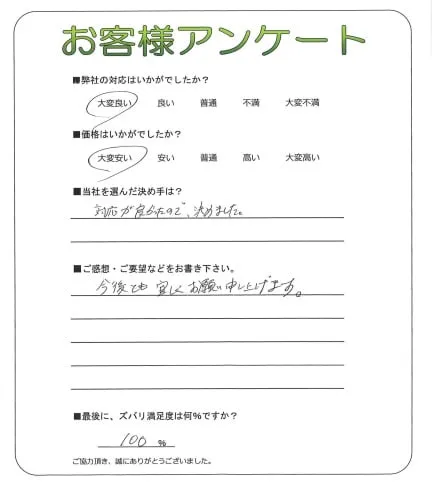 お客様アンケート
■弊社の対応はいかがでしたか？
大変良い 良い 普通 不満 大変不満
■価格はいかがでしたか？
大変安い 安い 普通 高い 大変高い
■当社を選んだ決め手は？
対応が良かったので、決めました。
■ご感想・ご要望などをお書き下さい。
今後とも宜しくお願い申し上げます。
■最後に、ズバリ満足度は何％ですか？
100 ％
ご協力頂き、誠にありがとうございました。